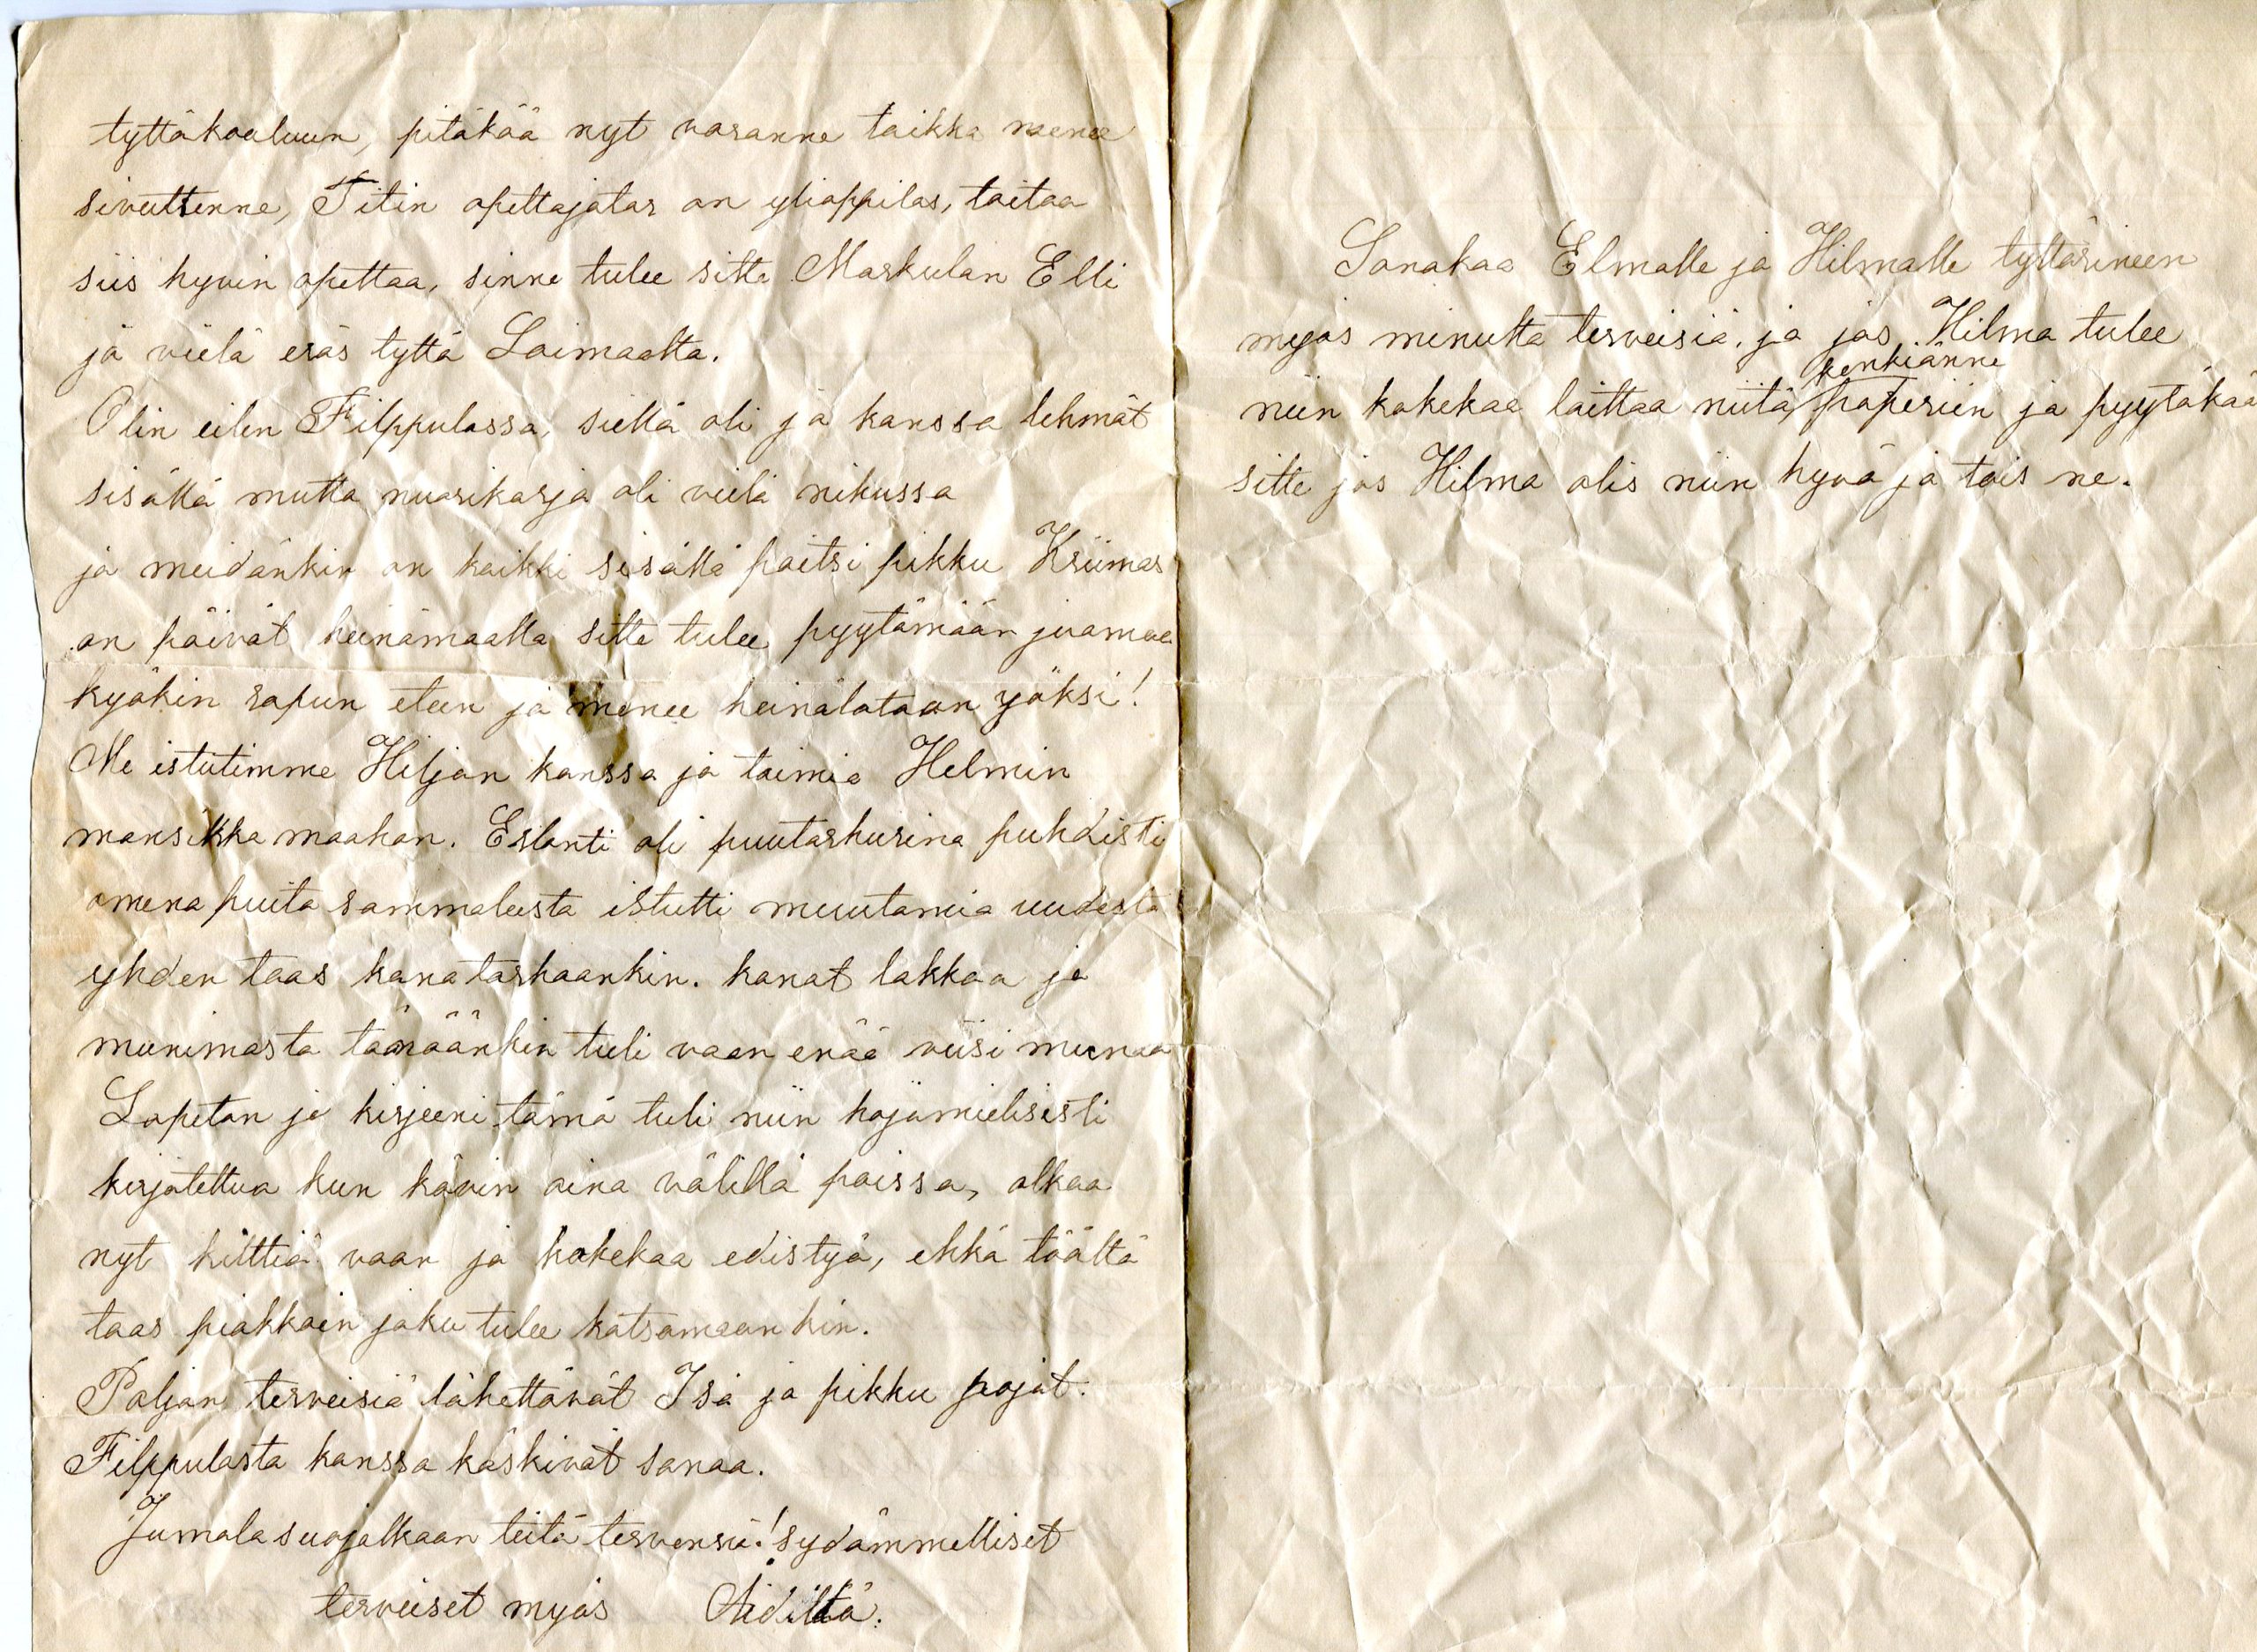 tyttökouluun, pitäkää nyt varanne taikka menee
sivuttenne, Titin opettajatar on ylioppilas, taitaa
siis hyvin opettaa, sinne tulee sitte Markulan Elli
ja vielä eräs tyttö Loimaalta.
Olin eilen Filppulassa, siellä oli jo kanssa lehmät
sisällä mutta nuorikarja oli vielä nikussa
ja meidänkin on kaikki sisällä paitsi pikku Kriimas
on päivät heinämaalla sitte tulee pyytämään juomaa
kyökin rapun eteen ja menee heinälatoon yöksi!
Me istutimme Hiljan kanssa jo taimia Helmin
mansikka maahan. Erlanti oli puutarhurina puhdisti
omena puita sammaleesta istutti muutamia uudesta
yhden taas kanatarhaankin. kanat lakkaa jo
munimasta tänäänkin tuli vaan enää viisi munaa
Lopetan jo kirjeeni, tämä tuli niin hajamielisesti
kirjotettua kun kävin aina välillä poissa, olkaa
nyt kilttiä vaan ja kokekaa edistyä, ehkä täältä
taas piakkoin joku tulee katsomaankin.
Paljon terveisiä lähettävät Isä ja pikku pojat.
Filppulasta kanssa käskivät sanoa.
Jumala suojelkaan teitä terveinä! sydämmelliset
terveiset myös Äidiltä.
Sanokaa Elmalle ja Hilmalle tyttärineen
myös minulta terveisiä. ja jos Hilma tulee
kenkiänne
niin kokekaa laittaa niitä paperiin ja pyytäkää
sitte jos Hilma olis niin hyvä ja tois ne.